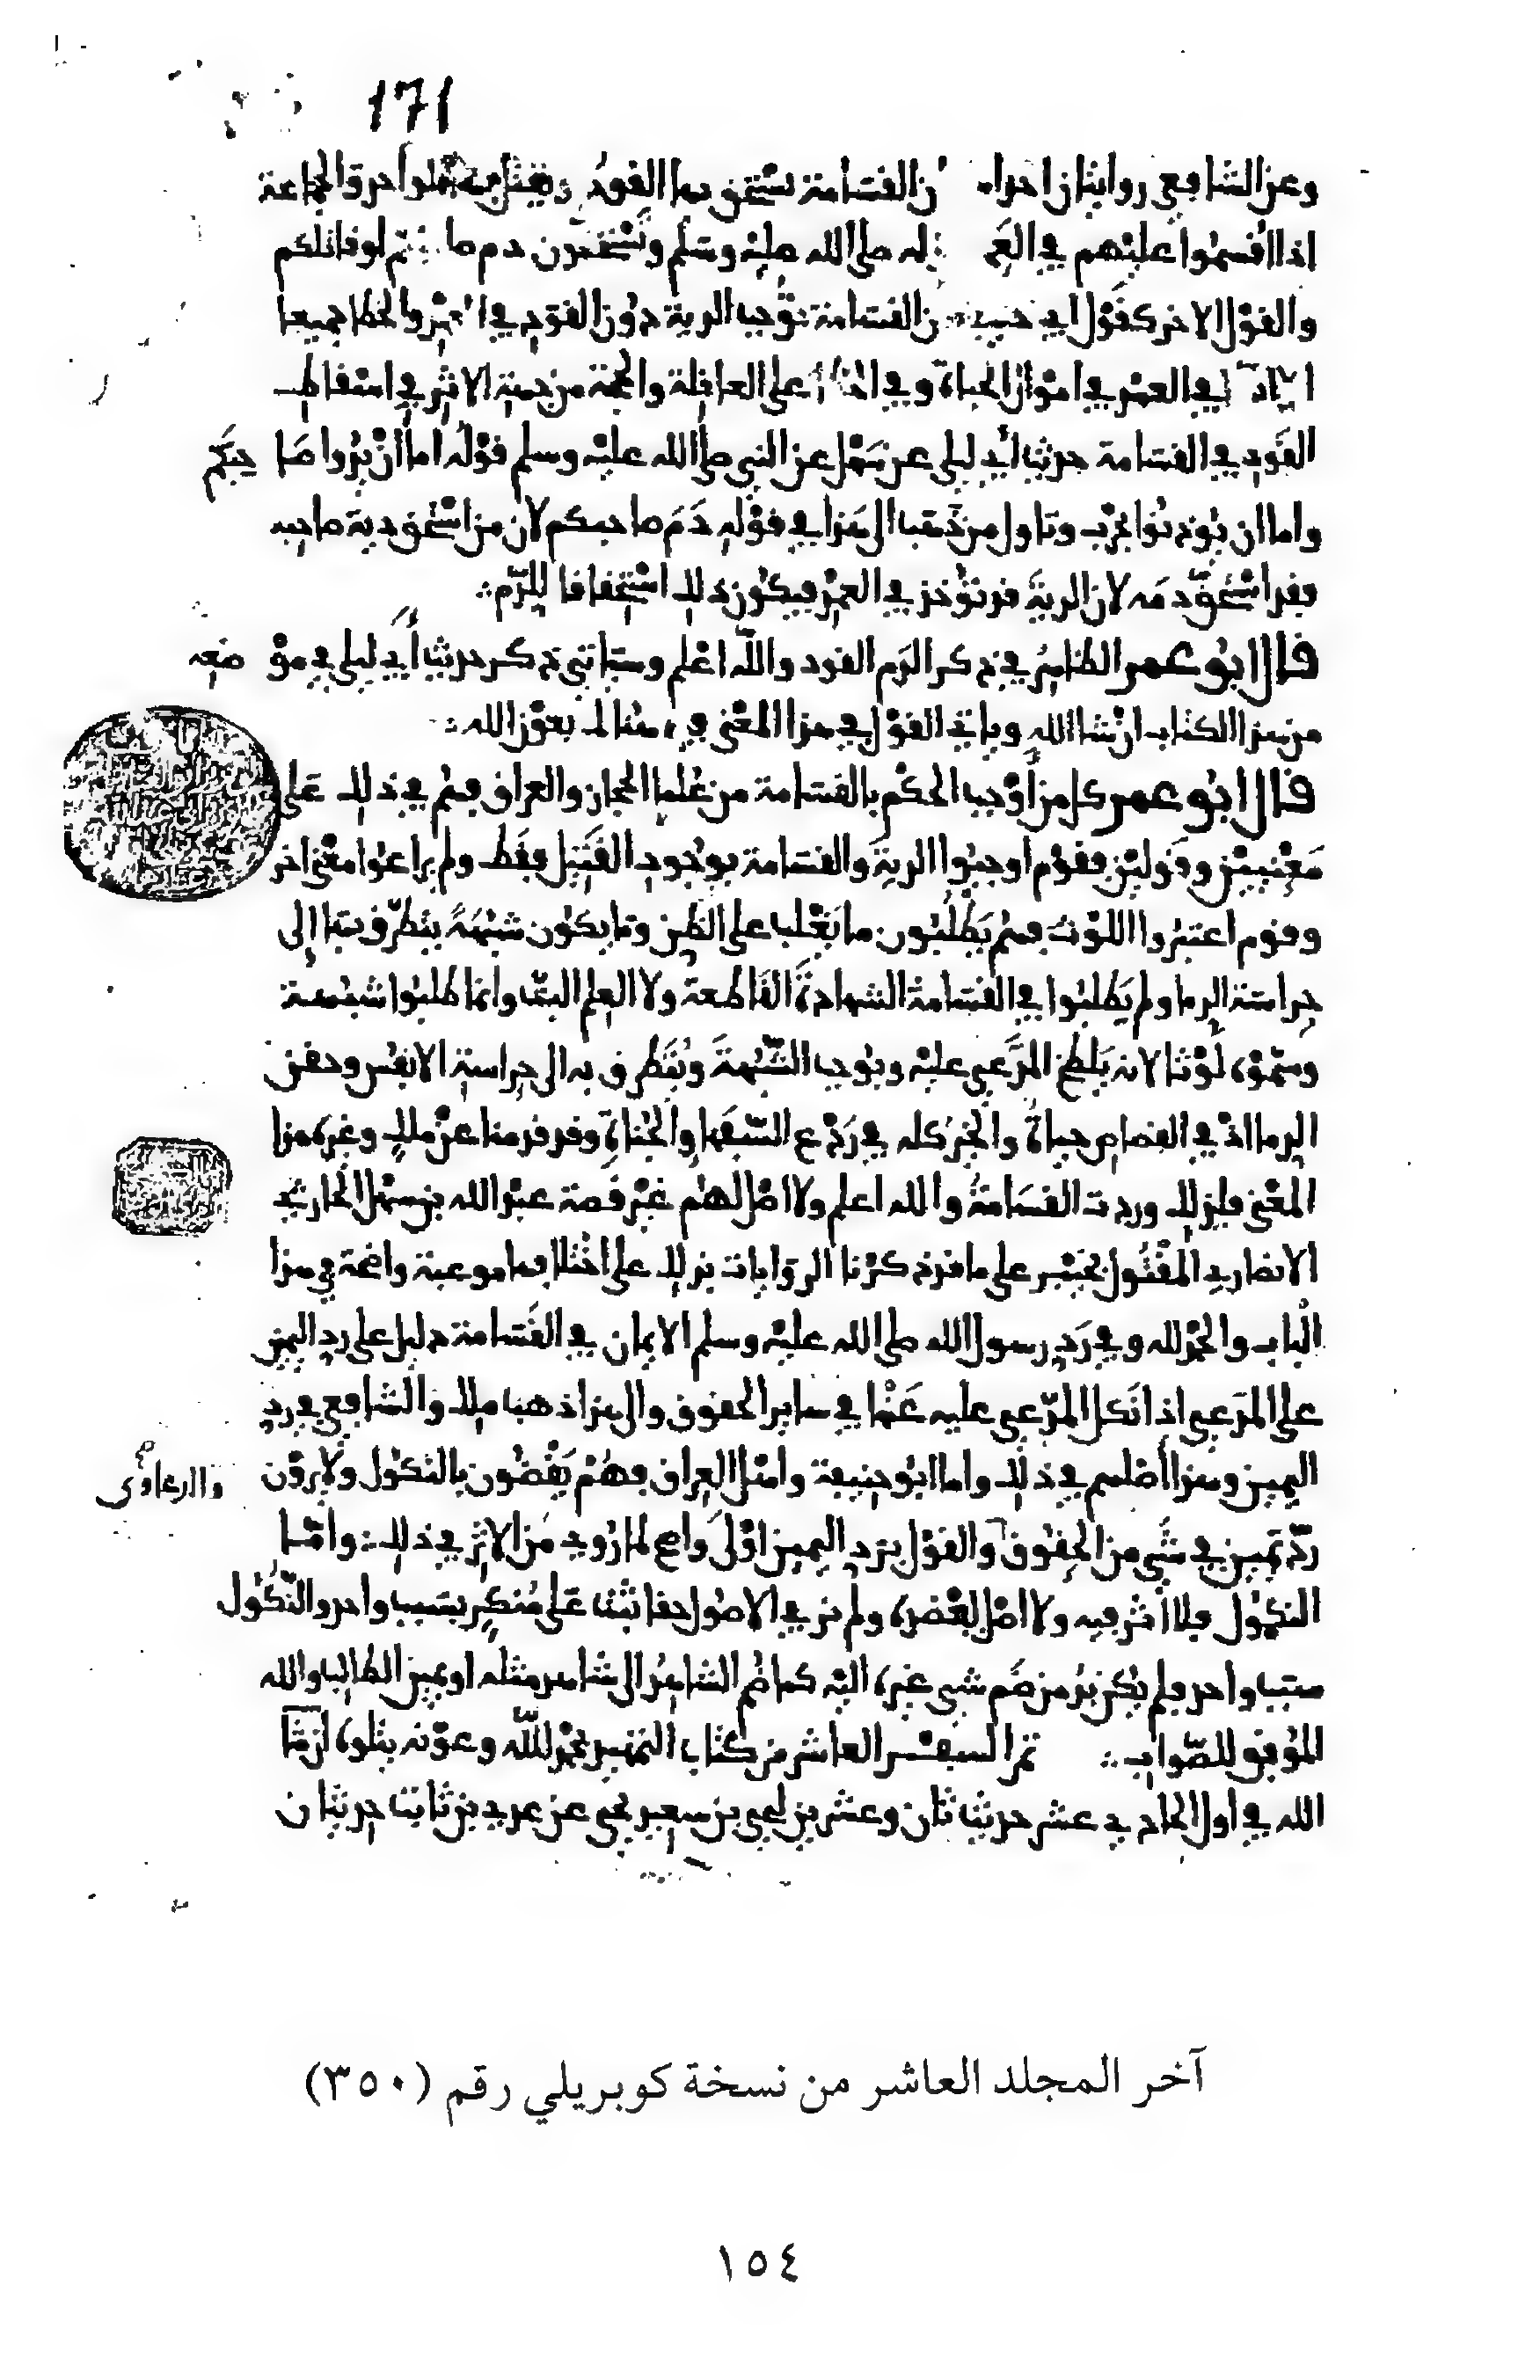 171
وعن الشافعي روايتان احداه ن القسامة يستحق بها القود ويقتل الواحد والجماعة
اذا اقسموا عليهم في العمد له صلى الله عليه وسلم وتستحقون دم صا تم لو قاتلكم
والقول الاخر كقول ابي حنيفة ن القسامة توجب الدية دون القود في العمد والخطا جميعا
في العمد في اموال الجناة وفي الخطا على العاقلة والحجة من جهة الاثر في اسقاط
القود في القسامة حديث أبي ليلى عن سهل عن النبي صلى الله عليه وسلم قوله اما أن يدوا صاحبكم
واما ان يؤذنوا بحرب وتاول من ذهب الى هذا في قوله دم صاحبكم لان من استحق دية صاحبه
فقد استحق دمه لان الدية قد تؤخذ في العمد فيكون ذلك استحقاقا للدم
قال ابو عمر الظاهر في ذكر الدم القود والله اعلم وسياتي ذكر حديث أبي ليلى في موضعه
من هذا الكتاب ان شا الله وياتي القول في هذا المعنى هنالك بعون الله
قال ابو عمر كل من أوجب الحكم بالقسامة من علما الحجاز والعراق فهم في ذلك على
معنيين وقولين فقوم اوجبوا الدية والقسامة بوجود القتيل فقط ولم يراعوا معنى اخر
وقوم اعتبروا اللوث فهم يطلبون ما يغلب على الظن وما يكون شبهة يتطرق بها إلى
حراسة الدما ولم يطلبوا في القسامة الشهادة القاطعة ولا العلم البت وانما طلبوا شبهة
وسموه لوثا لانه يلطخ المدعى عليه ويوجب الشبهة ويتطرق به الى حراسة الانفس وحقن
الدما اذ في القصاص حياة والخير كله في ردع السفها والجناة وقد قدمنا عن ملك وغيره هذا
المعنى فلذلك وردت القسامة والله اعلم ولا اصل لهم غير قصة عبد الله بن سهل الحارثي
الانصاري المقتول بخيبر على ما قد ذكرنا الروايات بذلك على اختلافها موعبة واضحة في هذا
الباب والحمد لله وفي رد رسول الله صلى الله عليه وسلم الايمان في القسامة دليل على رد اليمين
على المدعي اذا نكل المدعى عليه عنها في ساير الحقوق والى هذا ذهب ملك والشافعي في رد
اليمين وهذا أصلهم في ذلك واما ابو حنيفة واهل العراق فهم يقضون بالنكول ولا يرون
والدعاوى
رد يمين في شي من الحقوق والقول برد اليمين اولى واصح لما روي من الاثر في ذلك واما
النكول فلا أثر فيه ولا اصل يعضده ولم نر في الاصول حقا يثبت على منكر بسبب واحد والنكول
سبب واحد فلم يكن بد من ضم شي غيره اليه كما ضم الشاهد الى شاهد مثله او يمين الطالب والله
الموفق للصواب تم السفر العاشر من كتاب التمهيد بحمد الله وعونه يتلوه ان شا
الله في اول الحادي عشر حديث ثان وعشرين ليحيى بن سعيد يحيى عن عدي بن ثابت حديثان
آخر المجلد العاشر من نسخة كوبريلي رقم (٣٥٠)
١٥٤